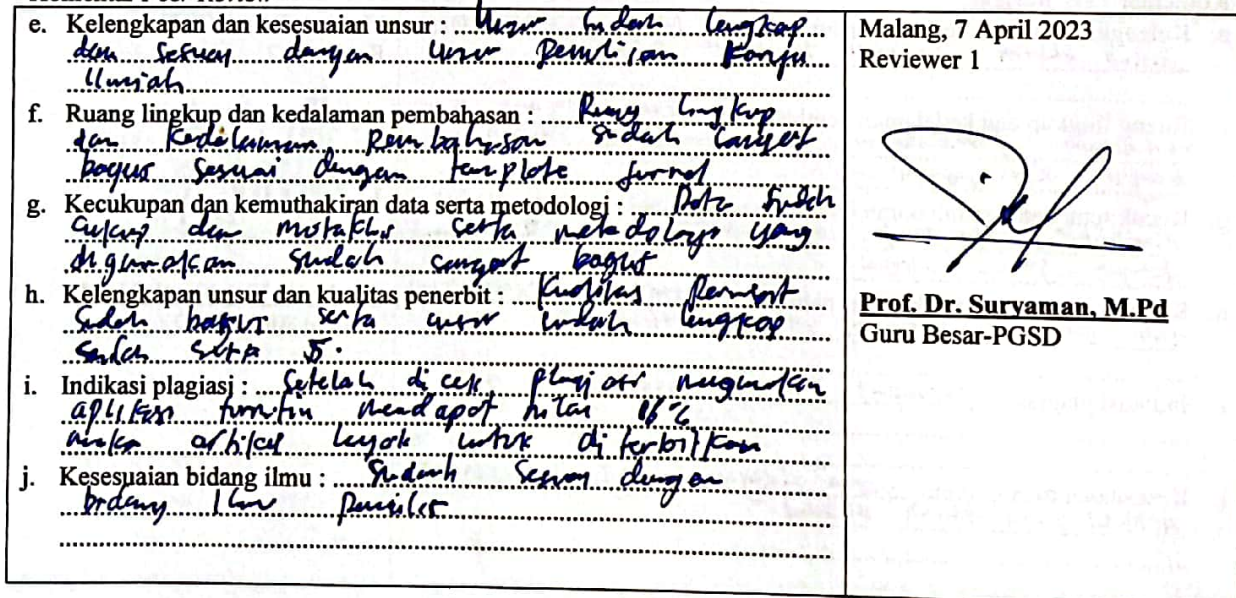 e. Kelengkapan dan kesesuaian unsur : Unsur sudah lengkap
dan sesuai dengan unsur penulisan karya
Ilmiah
f. Ruang lingkup dan kedalaman pembahasan : Ruang lingkup
dan kedalaman pembahasan sudah sangat
bagus sesuai dengan template jurnal
g. Kecukupan dan kemuthakiran data serta metodologi : Data sudah
cukup dan mutakhir serta metodologi yang
digunakan sudah sangat bagus
h. Kelengkapan unsur dan kualitas penerbit : Kualitas penerbit
sudah bagus serta unsur sudah lengkap
sudah Sinta 5.
i. Indikasi plagiasi : Setelah di cek plagiasi menggunakan
aplikasi turnitin mendapat nilai 16%
maka artikel layak untuk di terbitkan
j. Kesesuaian bidang ilmu : Sudah sesuai dengan
bidang Ilmu penulis
Malang, 7 April 2023
Reviewer 1
Prof. Dr. Suryaman, M.Pd
Guru Besar-PGSD